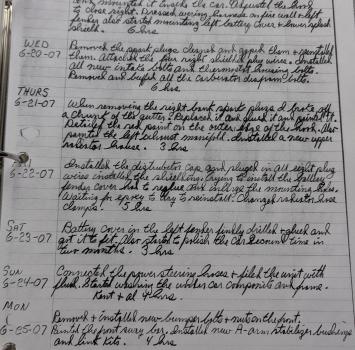 and mounted it inside the car. Adjusted the hood
to close right. Dressed wiring harness on fire wall + left
fender also started mounting left battery cover + lower splash
shield. 6 hrs
WED
6-20-07
Removed the spark plugs cleaned and gaped them + reinstalled
them. Attached the four right shielded plug wires. Installed
all new intake bolts and thermostat housing bolts.
Removed and buffed all the carburetor diaphragm bolts.
6 hrs
THURS
6-21-07
When removing the right bank spark plugs I broke off
a chunk of the gutter. Replaced it and glued it and painted it.
Detailed the red paint on the outer edge of the hood. Also
painted the left exhaust manifold. Installed a new upper
radiator hose. 3 hrs
6-22-07
Installed the distributor cap and pluged in all eight plug
wires installed the shielding. Trying to install the battery
fender cover had to reglue and enlarge the mounting holes.
Waiting for epoxy to dry to reinstall. Changed radiator hose
clamps. 5 hrs
SAT
6-23-07
Battery cover in the left fender finally drilled + glued and
got it to fit. Also started to polish the car second time in
two months. 3 hrs
SUN
6-24-07
Connected the power steering hoses + filled the unit with
fluid. Started washing the under car components and frame.
Kent + al 4 hrs.
MON
6-25-07
Removed + installed new bumper bolts + nuts on the front.
Painted the front sway bar. Installed new A-arm stabilizer bushings
and link kits. 4 hrs